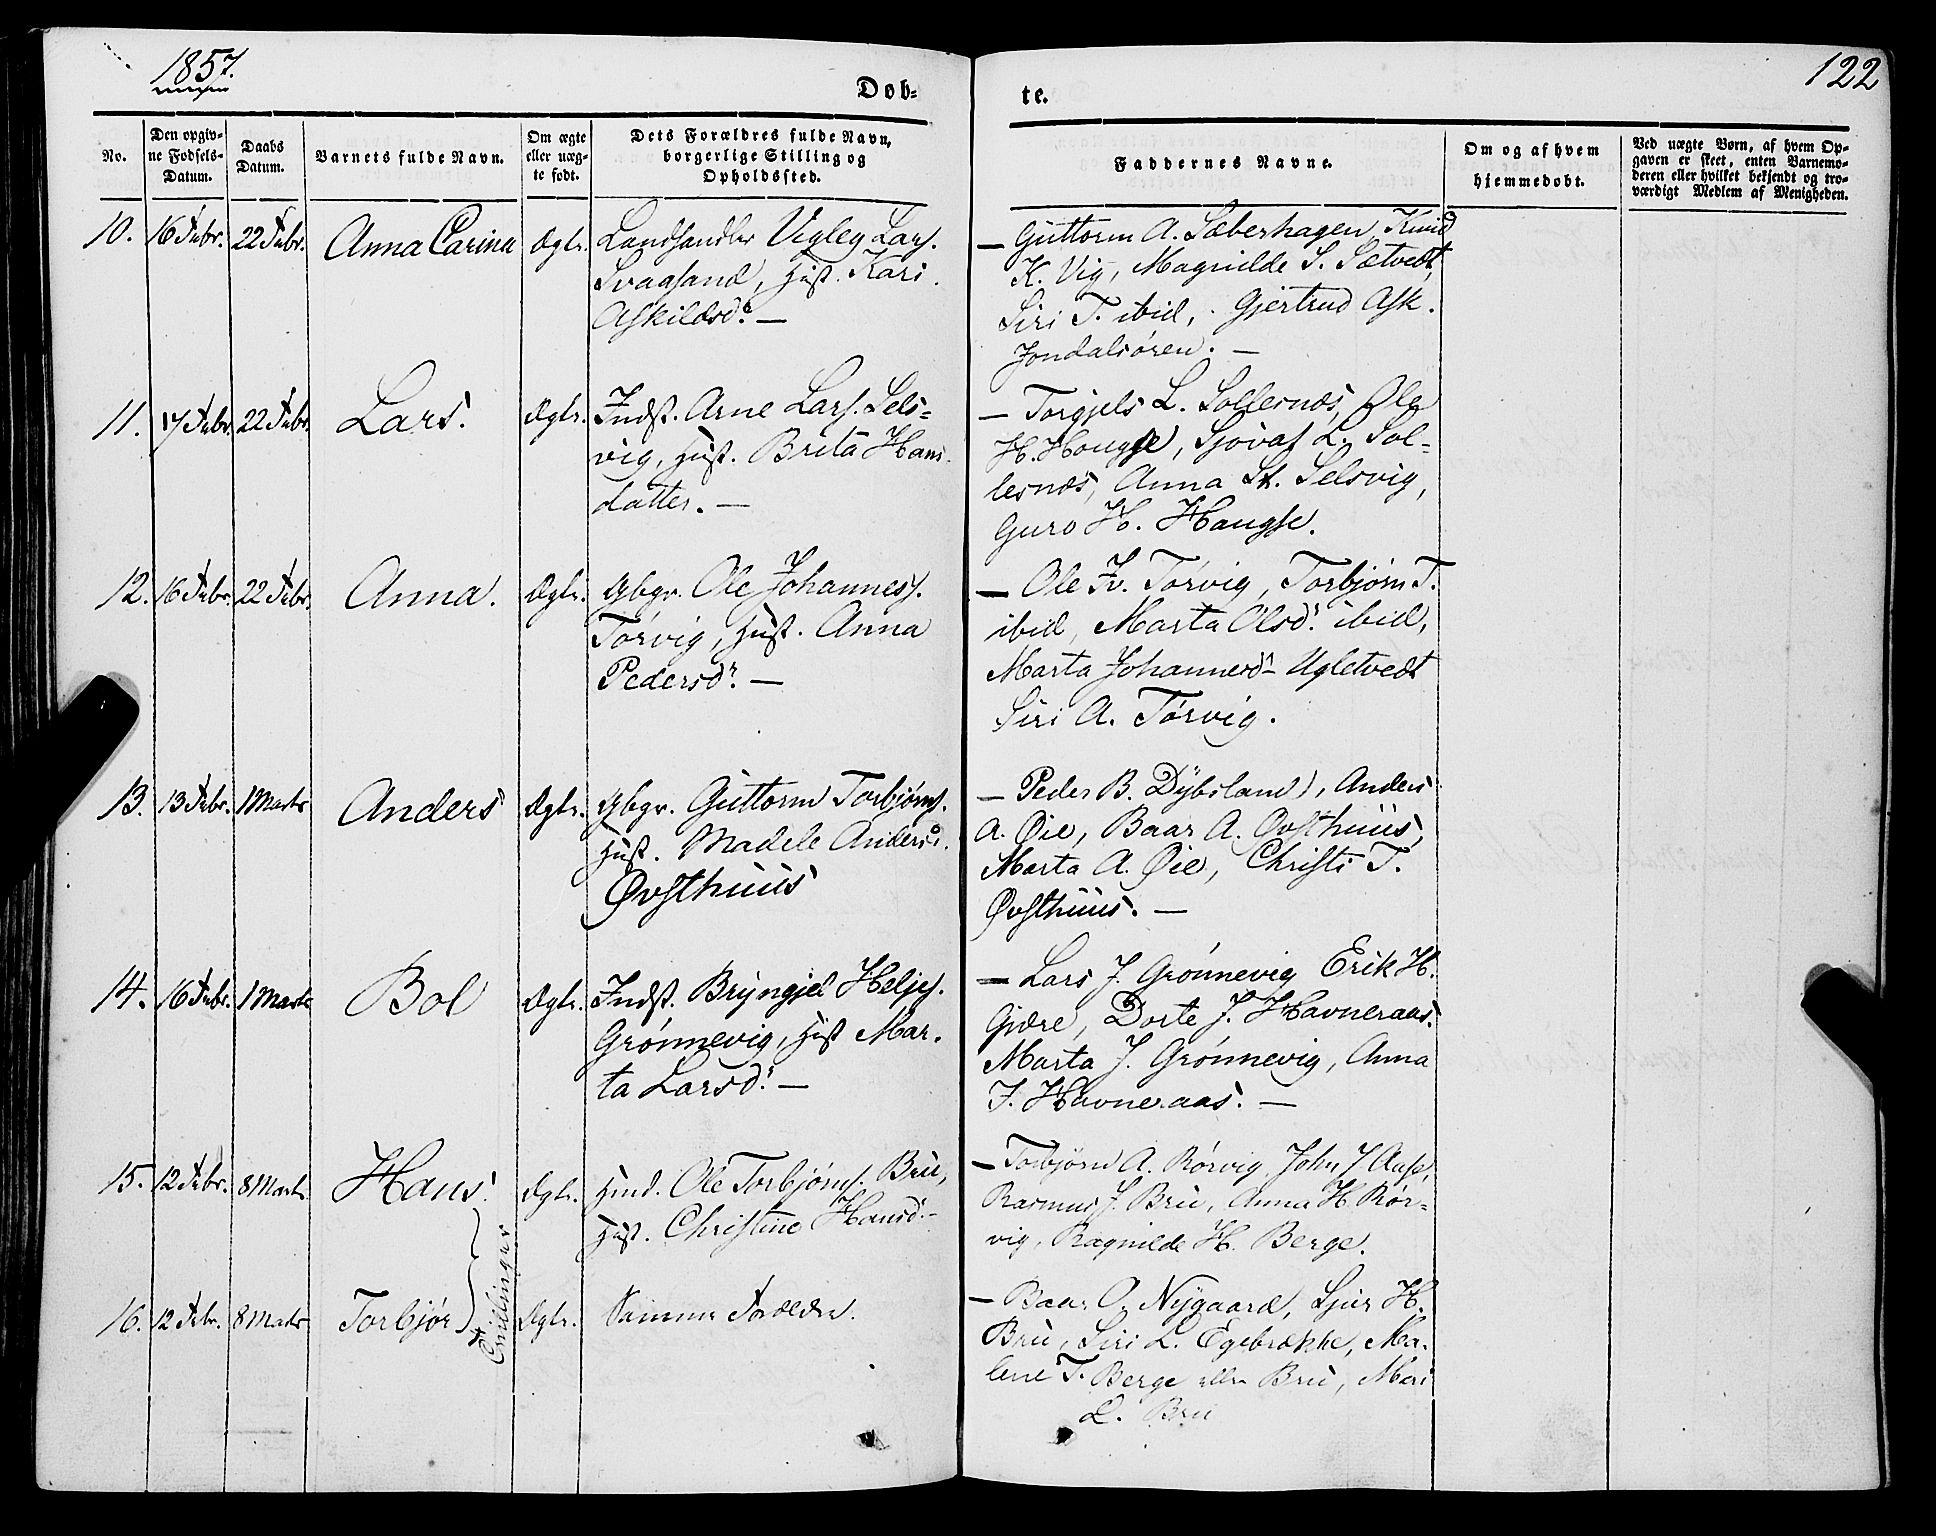 1857.
122
Døb-
te.
No.
Den opgiv-
ne Fødsels-
Datum.
Daabs
Datum.
Barnets fulde Navn.
Om ægte
eller uæg-
te født.
Dets Forældres fulde Navn,
borgerlige Stilling og
Opholdssted.
Faddernes Navne.
Om og af hvem
hjemmedøbt.
Ved uægte Børn, af hvem Op-
gaven er skeet, enten Barnemo-
deren eller hvilket bekjendt og tro-
værdigt Medlem af Menigheden.
10. 16 Febr. 22 Febr. Anna Carina Ægte. Landhandler Vigleg Lars.
Svaasand, Hust. Kari
Askildsdr. —
— Guttorm A. Sæberhagen, Knud
K. Vig, Magnilde S. Sætvedt,
Siri T. ibid, Gjertrud Ask.
Jondalsøren. —
11. 17 Febr. 22 Febr. Lars. Ægte. Indst. Arne Lars. Sels-
vig, Hust. Brita Hans
datter. —
— Torgjels L. Sollesnæs, Ole
H. Hougse, Sjovas L. Sol-
lesnæs, Anna St. Selsvig,
Guro H. Haugse.
12. 16 Febr. 22 Febr. Anna. Ægte. Gbgr. Ole Johanness.
Tørvig, Hust. Anna
Pedersdr. —
— Ole Tørvig, Torbjørn T.
ibid, Marta Olsdr. ibid,
Marta Johannesdr Ugletvedt
Siri A. Tørvig.
13. 13 Febr. 1 Marts Anders Ægte. Gbgr. Guttorm Torbjørns.
Hust. Madele Andersd.
Øvsthuus
— Peder B. Dybsland, Anders
A. Øie, Baar A. Øvsthuus,
Marta A. Øie, Christi T.
Øvsthuus. —
14. 16 Febr. 1 Marts Bol Ægte. Indst. Bryngjel Heljes.
Grønnevig, Hust Mar-
ta Larsdr. —
— Lars J. Grønnevig Erik H.
Gjære, Dorte J. Havneraas.
Marta J. Grønnevig, Anna
J. Havneraas. —
15. 12 Febr. 8 Marts. Hans. Ægte. Hmd. Ole Torbjørns. Bru,
Hust. Christine Hansdr. —
— Torbjørn A. Rørvig, John J Ause,
Rasmus J. Bru, Anna H Rør-
vig, Ragnilde H. Berge.
Tvillinger
16. 12 Febr. 8 Marts Torbjør Ægte. Samme Forældre.
— Baar O. Nygaard, Sjur H.
Bru, Siri L. Egebrække, Ma-
lene T. Berge eller Bru, Mari
D. Bru